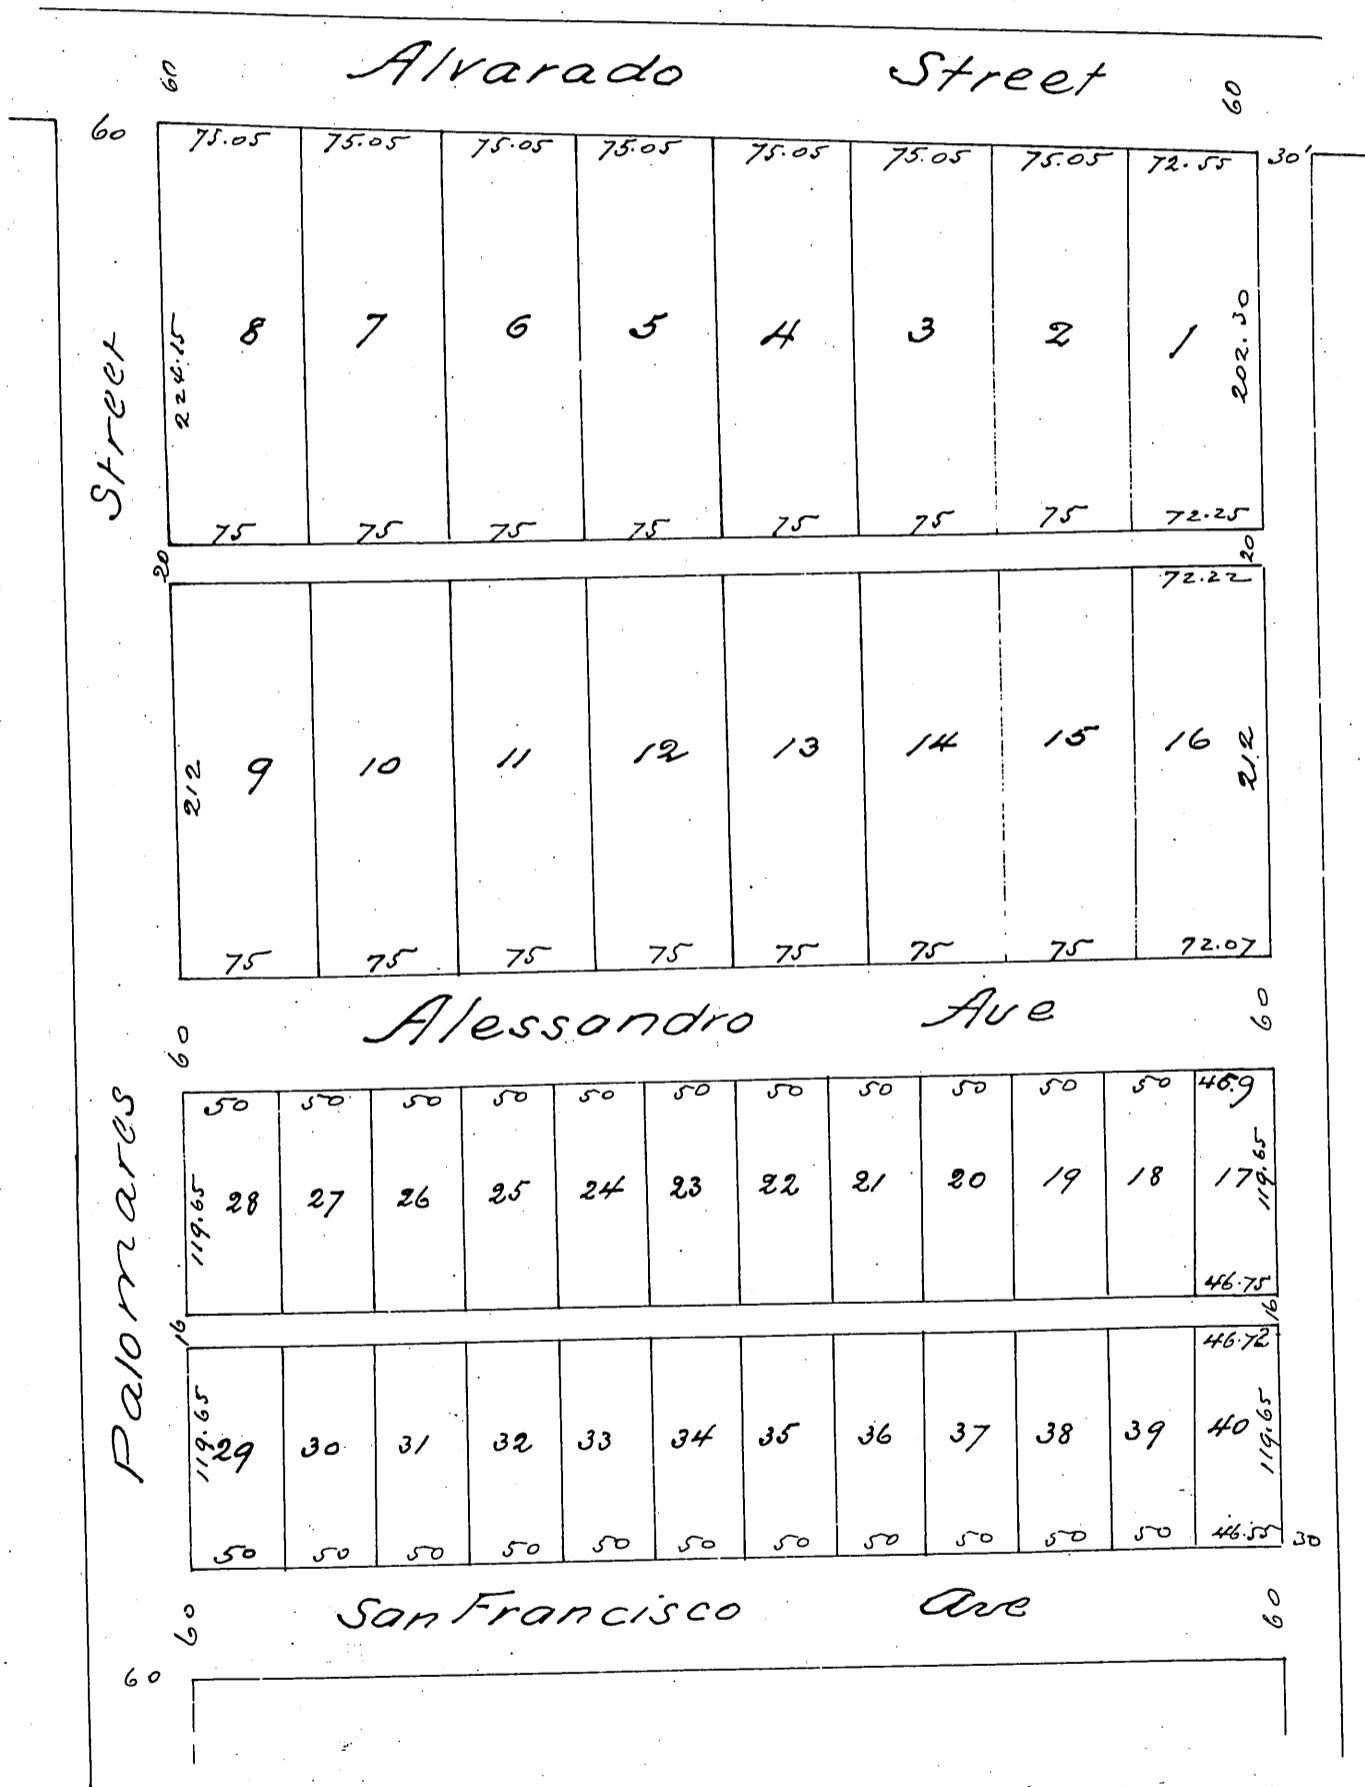 Alvarado Street
60 60
60 75.05 75.05 75.05 75.05 75.05 75.05 75.05 72.55 30'
224.15 8 7 6 5 4 3 2 1 202.30
75 75 75 75 75 75 75 72.25
20 20
72.22
212 9 10 11 12 13 14 15 16 212
75 75 75 75 75 75 75 72.07
60 Alessandro Ave 60
50 50 50 50 50 50 50 50 50 50 50 46.9
119.65 28 27 26 25 24 23 22 21 20 19 18 17 119.65
46.75
16 16
46.72
119.65 29 30 31 32 33 34 35 36 37 38 39 40 119.65
50 50 50 50 50 50 50 50 50 50 50 46.55 30
60 San Francisco Ave 60
60
Palomares Street